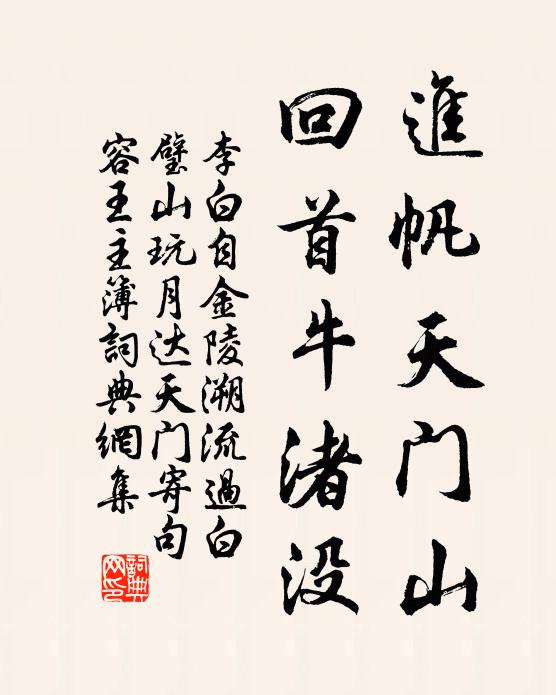 進帆天门山
回首牛渚没
李白自金陵溯流過白
璧山玩月达天门寄句
容王主簿詞典網集
詞典
网印